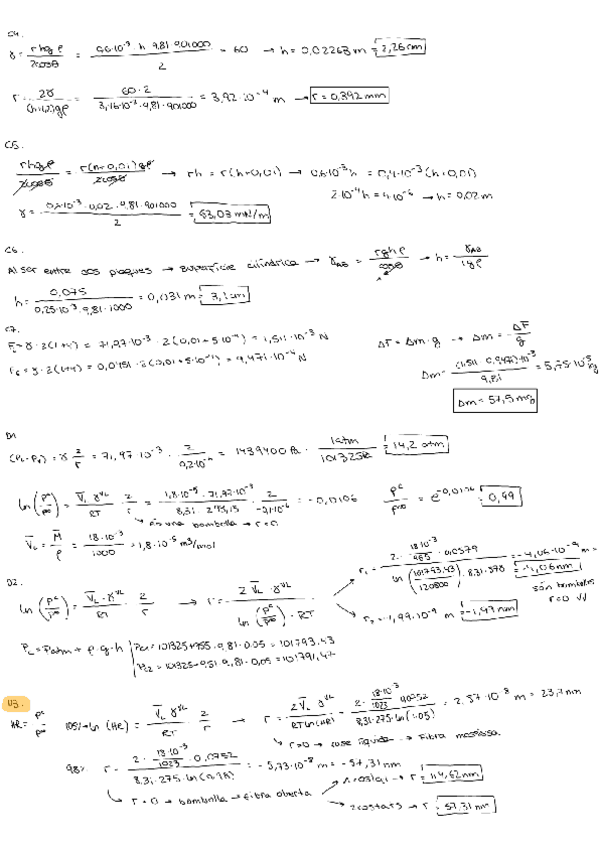 C4.
γ = rhgρ / 2cosθ = 0,6·10⁻³·h·9,81·0,901000 / 2 = 60 → h = 0,02263 m = 2,26 cm
r = 2γ / (h+1,2)gρ = 60·2 / 3,46·10⁻²·9,81·901000 = 3,92·10⁻⁴ m → r = 0,392 mm
C5.
rhgρ / 2cosθ = r(h+0,01)gρ / 2cosθ → rh = r(h+0,01) → 0,6·10⁻³h = 0,4·10⁻³(h+0,01)
2·10⁻⁴h = 4·10⁻⁶ → h = 0,02 m
γ = 0,6·10⁻³·0,02·9,81·901000 / 2 = 53,03 mN/m
C6.
Al ser entre dos plaques → superfície cilíndrica → γAB = rghρ / cosθ → h = γAB / rgρ
h = 0,075 / 0,25·10⁻³·9,81·1000 = 0,031 m = 3,1 cm
C7.
F = γ·2(l+t) = 71,97·10⁻³·2(0,01+5·10⁻⁴) = 1,511·10⁻³ N
F = γ·2(l+t) = 0,0451·2(0,01+5·10⁻⁴) = 9,471·10⁻⁴ N
ΔF = Δm·g → Δm = ΔF / g
Δm = (1,511-0,9471)·10⁻³ / 9,81 = 5,75·10⁻⁵ kg
Δm = 57,5 mg
D1
= γ 2/r = 71,97·10⁻³· 2 / 0,1·10⁻⁶ = 1439400 Pa · 1 atm / 101325 Pa = 14,2 atm
ln(pᶜ/p∞) = V̄L γᵛᴸ / RT · 2/r = 1,8·10⁻⁵·71,97·10⁻³ / 8,31·273,15 · 2 / -0,1·10⁻⁶ = -0,0106
pᶜ / p∞ = e⁻⁰,⁰¹⁰⁶ = 0,99
és una bombolla → r<0
V̄L = M̄ / ρ = 18·10⁻³ / 1000 = 1,8·10⁻⁵ m³/mol
D2.
ln(pᶜ/p∞) = V̄L·γᵛᴸ / RT · 2/r → r = 2V̄L·γᵛᴸ / ln(pᶜ/p∞)·RT
r₁ = 2· 18·10⁻³/955 ·0,0579 / ln(101793,43/120800)·8,31·378 = -4,06·10⁻⁹ m = -4,06 nm
r₂ = -1,99·10⁻⁹ m = -1,97 nm
són bombolles r<0
PL = Patm + ρ·g·h
Pc1 = 101325+955·9,81·0,05 = 101793,43
Pc2 = 101325+951·9,81·0,05 = 101791,47
D3.
HR = pᶜ / p∞ 105% → ln(HR) = V̄L γᵛᴸ / RT · 2/r → r = 2V̄L γᵛᴸ / RT ln(HR) = 2· 18·10⁻³/1023 ·0,0752 / 8,31·275·ln(1,05) = 2,37·10⁻⁸ m = 23,7 nm
r>0 → cose líquida → Fibra massissa
98% r = 2· 18·10⁻³/1023 ·0,0752 / 8,31·275·ln(0,98) = -5,73·10⁻⁸ m = -57,31 nm
r<0 → bombolla → fibra oberta
1 costat → r = 114,62 nm
2 costats → r = 57,31 nm